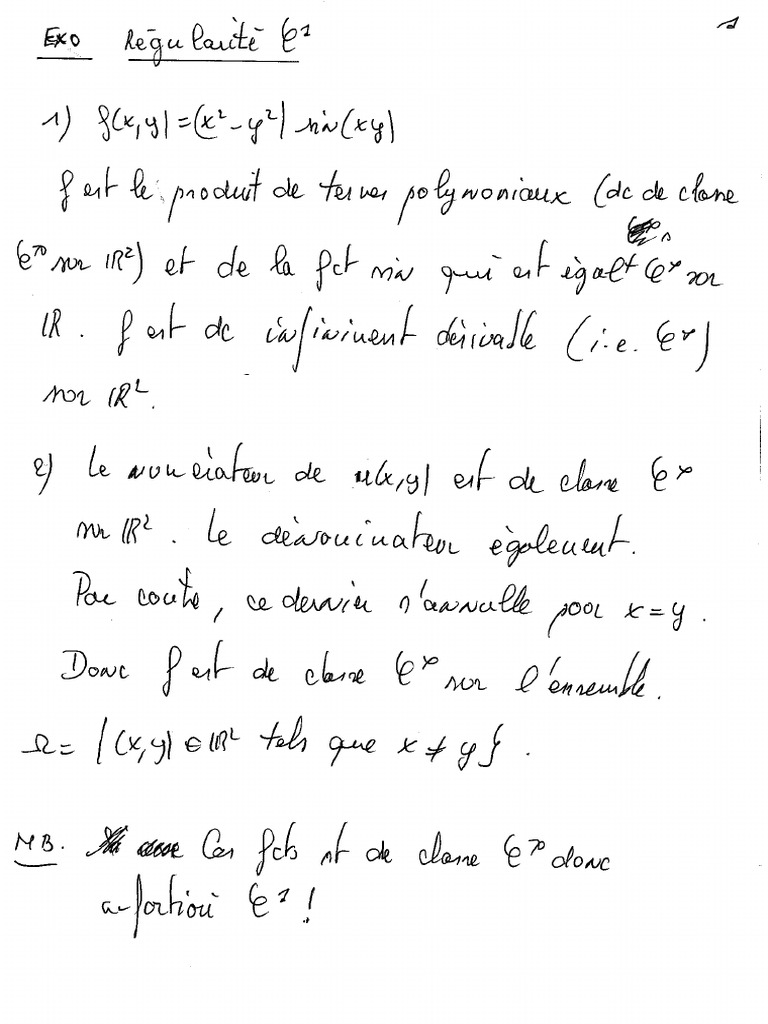 1
Exo Régularité C¹
1) f(x,y)=(x²-y²) sin(xy)
f est le produit de termes polynomiaux (dc de classe
C∞ sur IR²) et de la fct sin qui est égalt C∞ sur
IR. f est dc infiniment dérivable (i.e. C∞)
sur IR².
2) Le numérateur de u(x,y) est de classe C∞
sur IR². Le dénominateur également.
Par contre, ce dernier s'annulle pour x=y.
Donc f est de classe C∞ sur l'ensemble.
Ω= {(x,y) ∈ IR² tels que x ≠ y}.
NB. Ces fcts st de classe C∞ donc
a-fortiori C¹ !